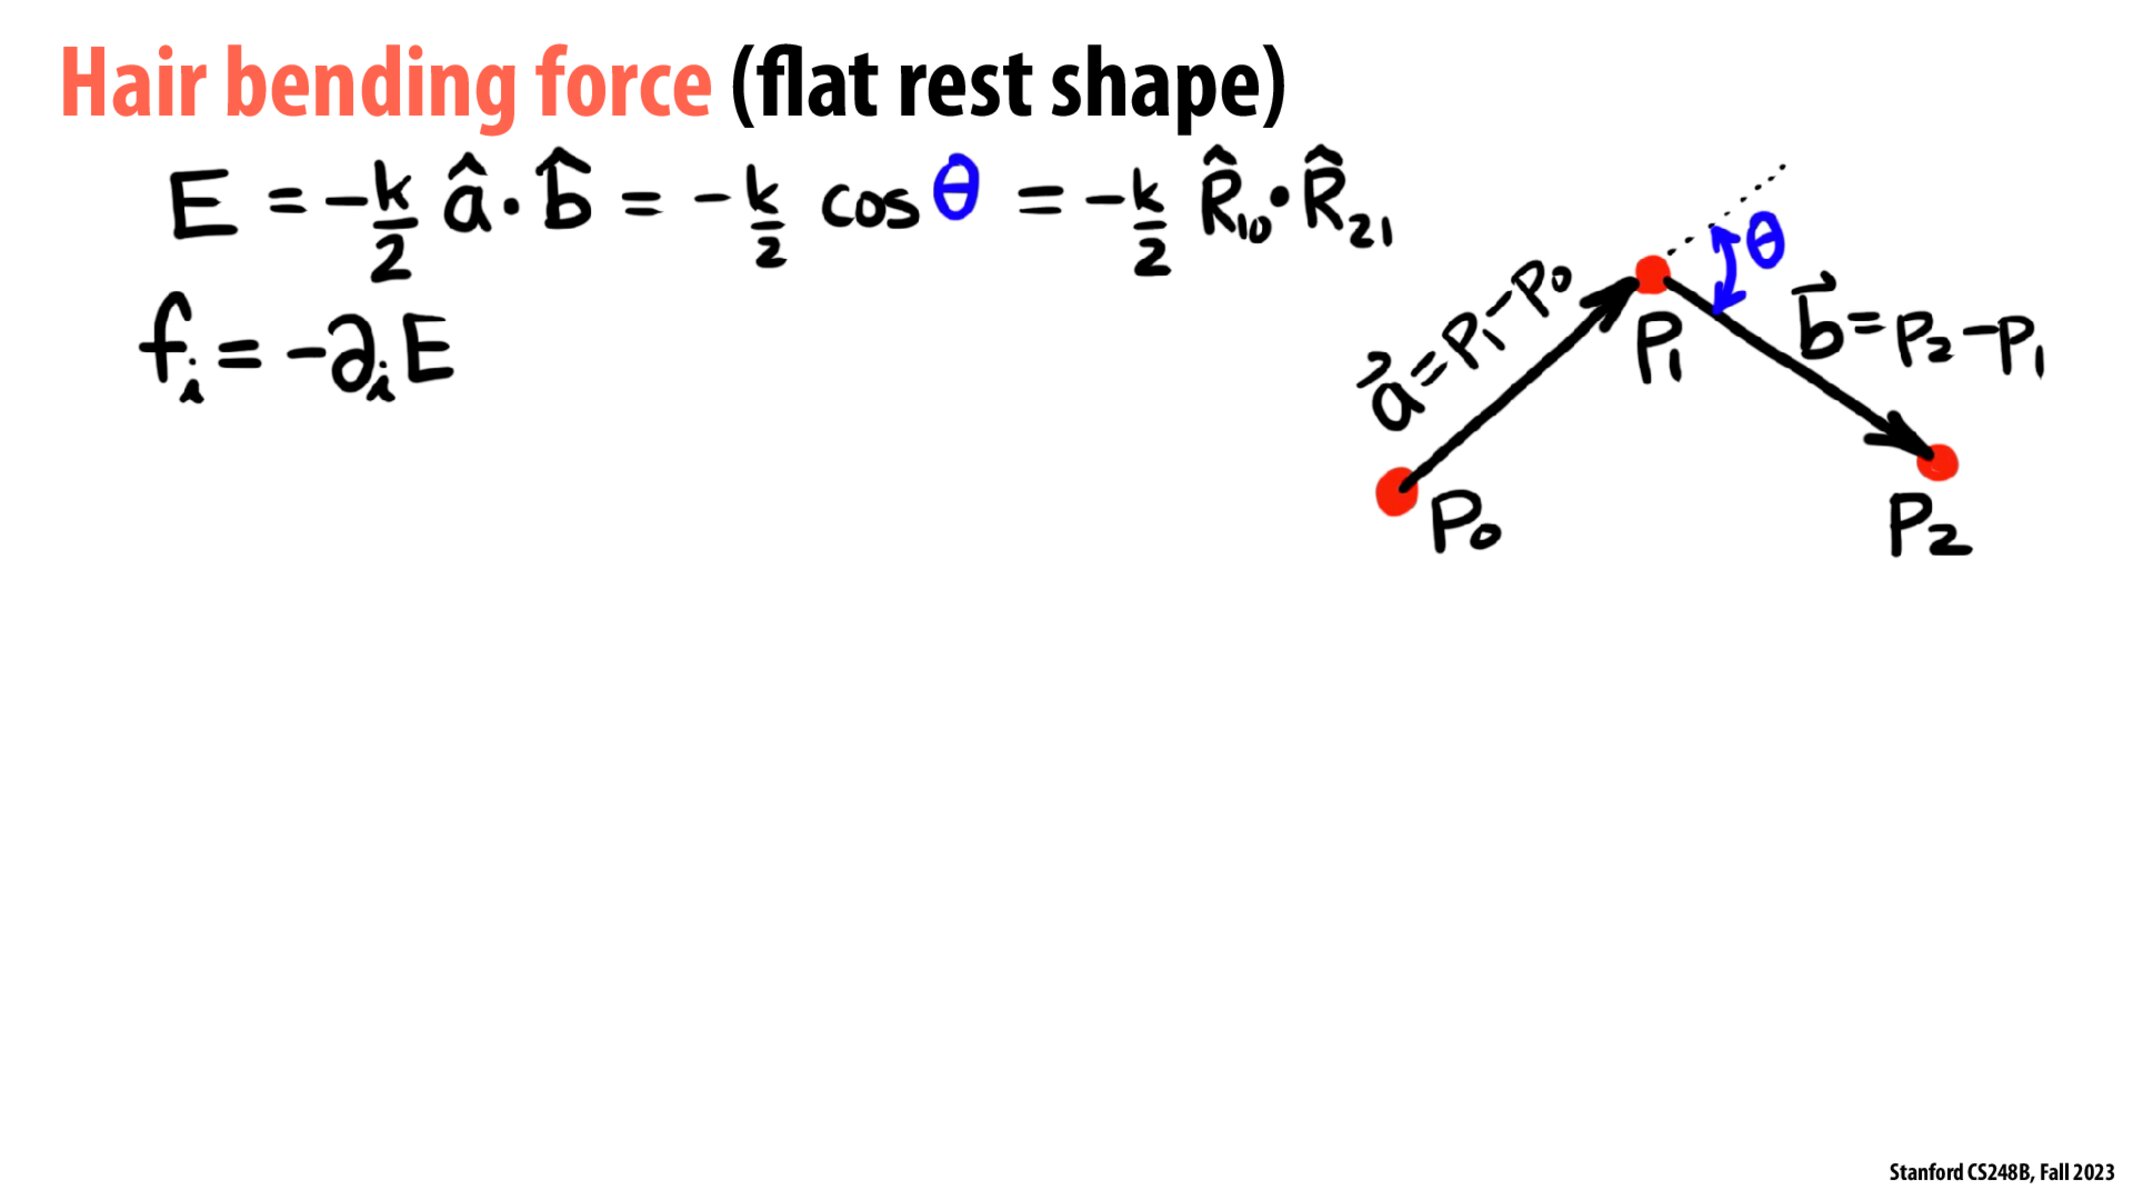 Hair bending force (flat rest shape)
E = -k/2 â·b̂ = -k/2 cos θ = -k/2 R̂₁₀·R̂₂₁
fᵢ = -∂ᵢE
θ
a⃗ = P₁-P₀
b⃗ = P₂-P₁
P₁
P₀
P₂
Stanford CS248B, Fall 2023